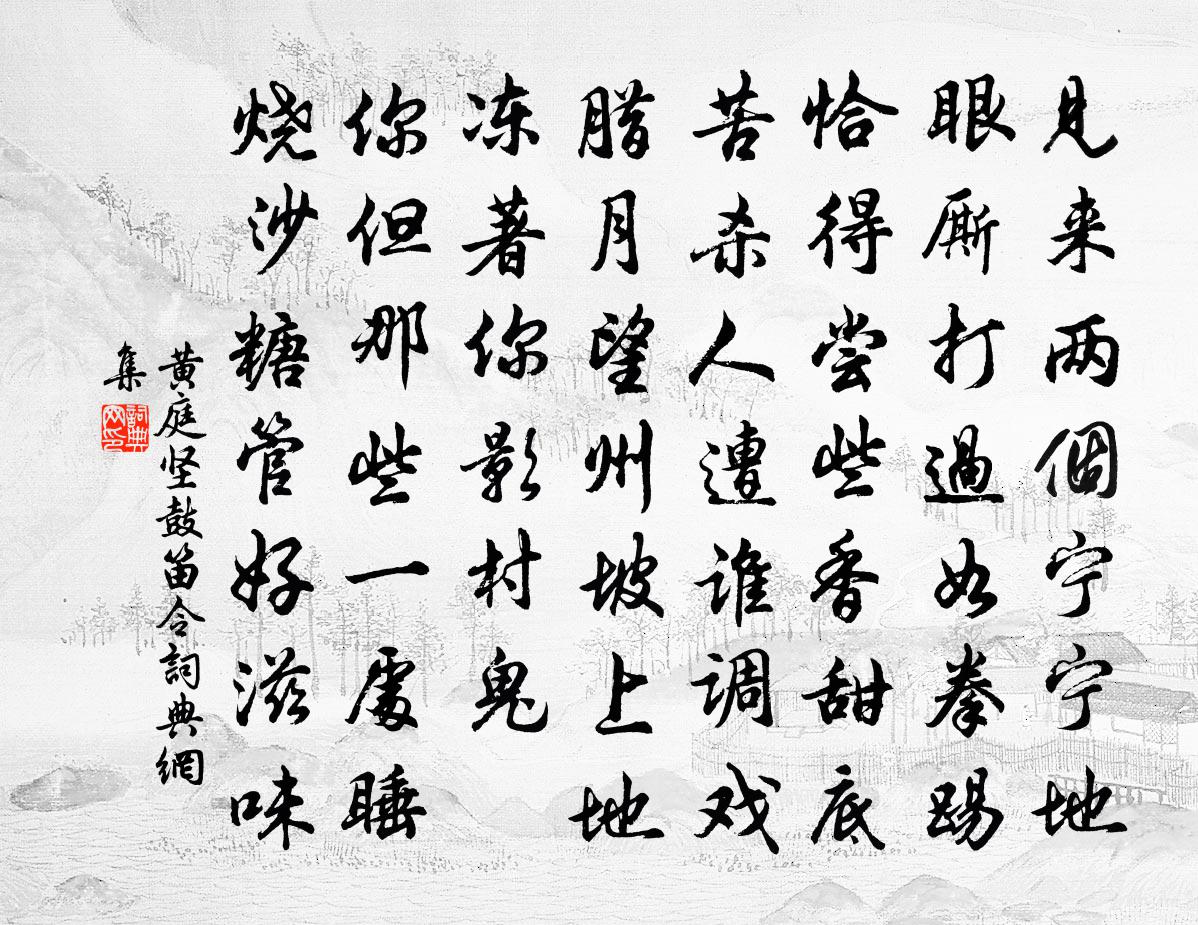 见来两個宁宁地
眼厮打過如拳踢
恰得尝些香甜底
苦杀人遭谁调戏
腊月望州坡上地
冻著你影村鬼
你但那些一處睡
烧沙糖管好滋味
黄庭坚鼓笛令詞典網
集
詞典
网印